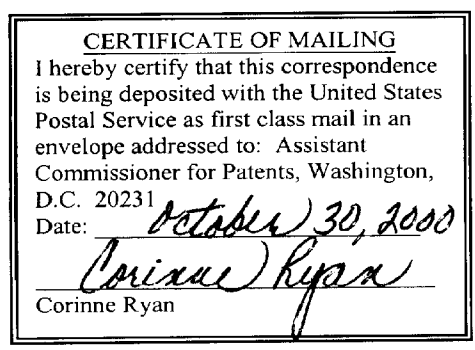 CERTIFICATE OF MAILING
I hereby certify that this correspondence
is being deposited with the United States
Postal Service as first class mail in an
envelope addressed to: Assistant
Commissioner for Patents, Washington,
D.C. 20231
Date: October 30, 2000
Corinne Ryan
Corinne Ryan